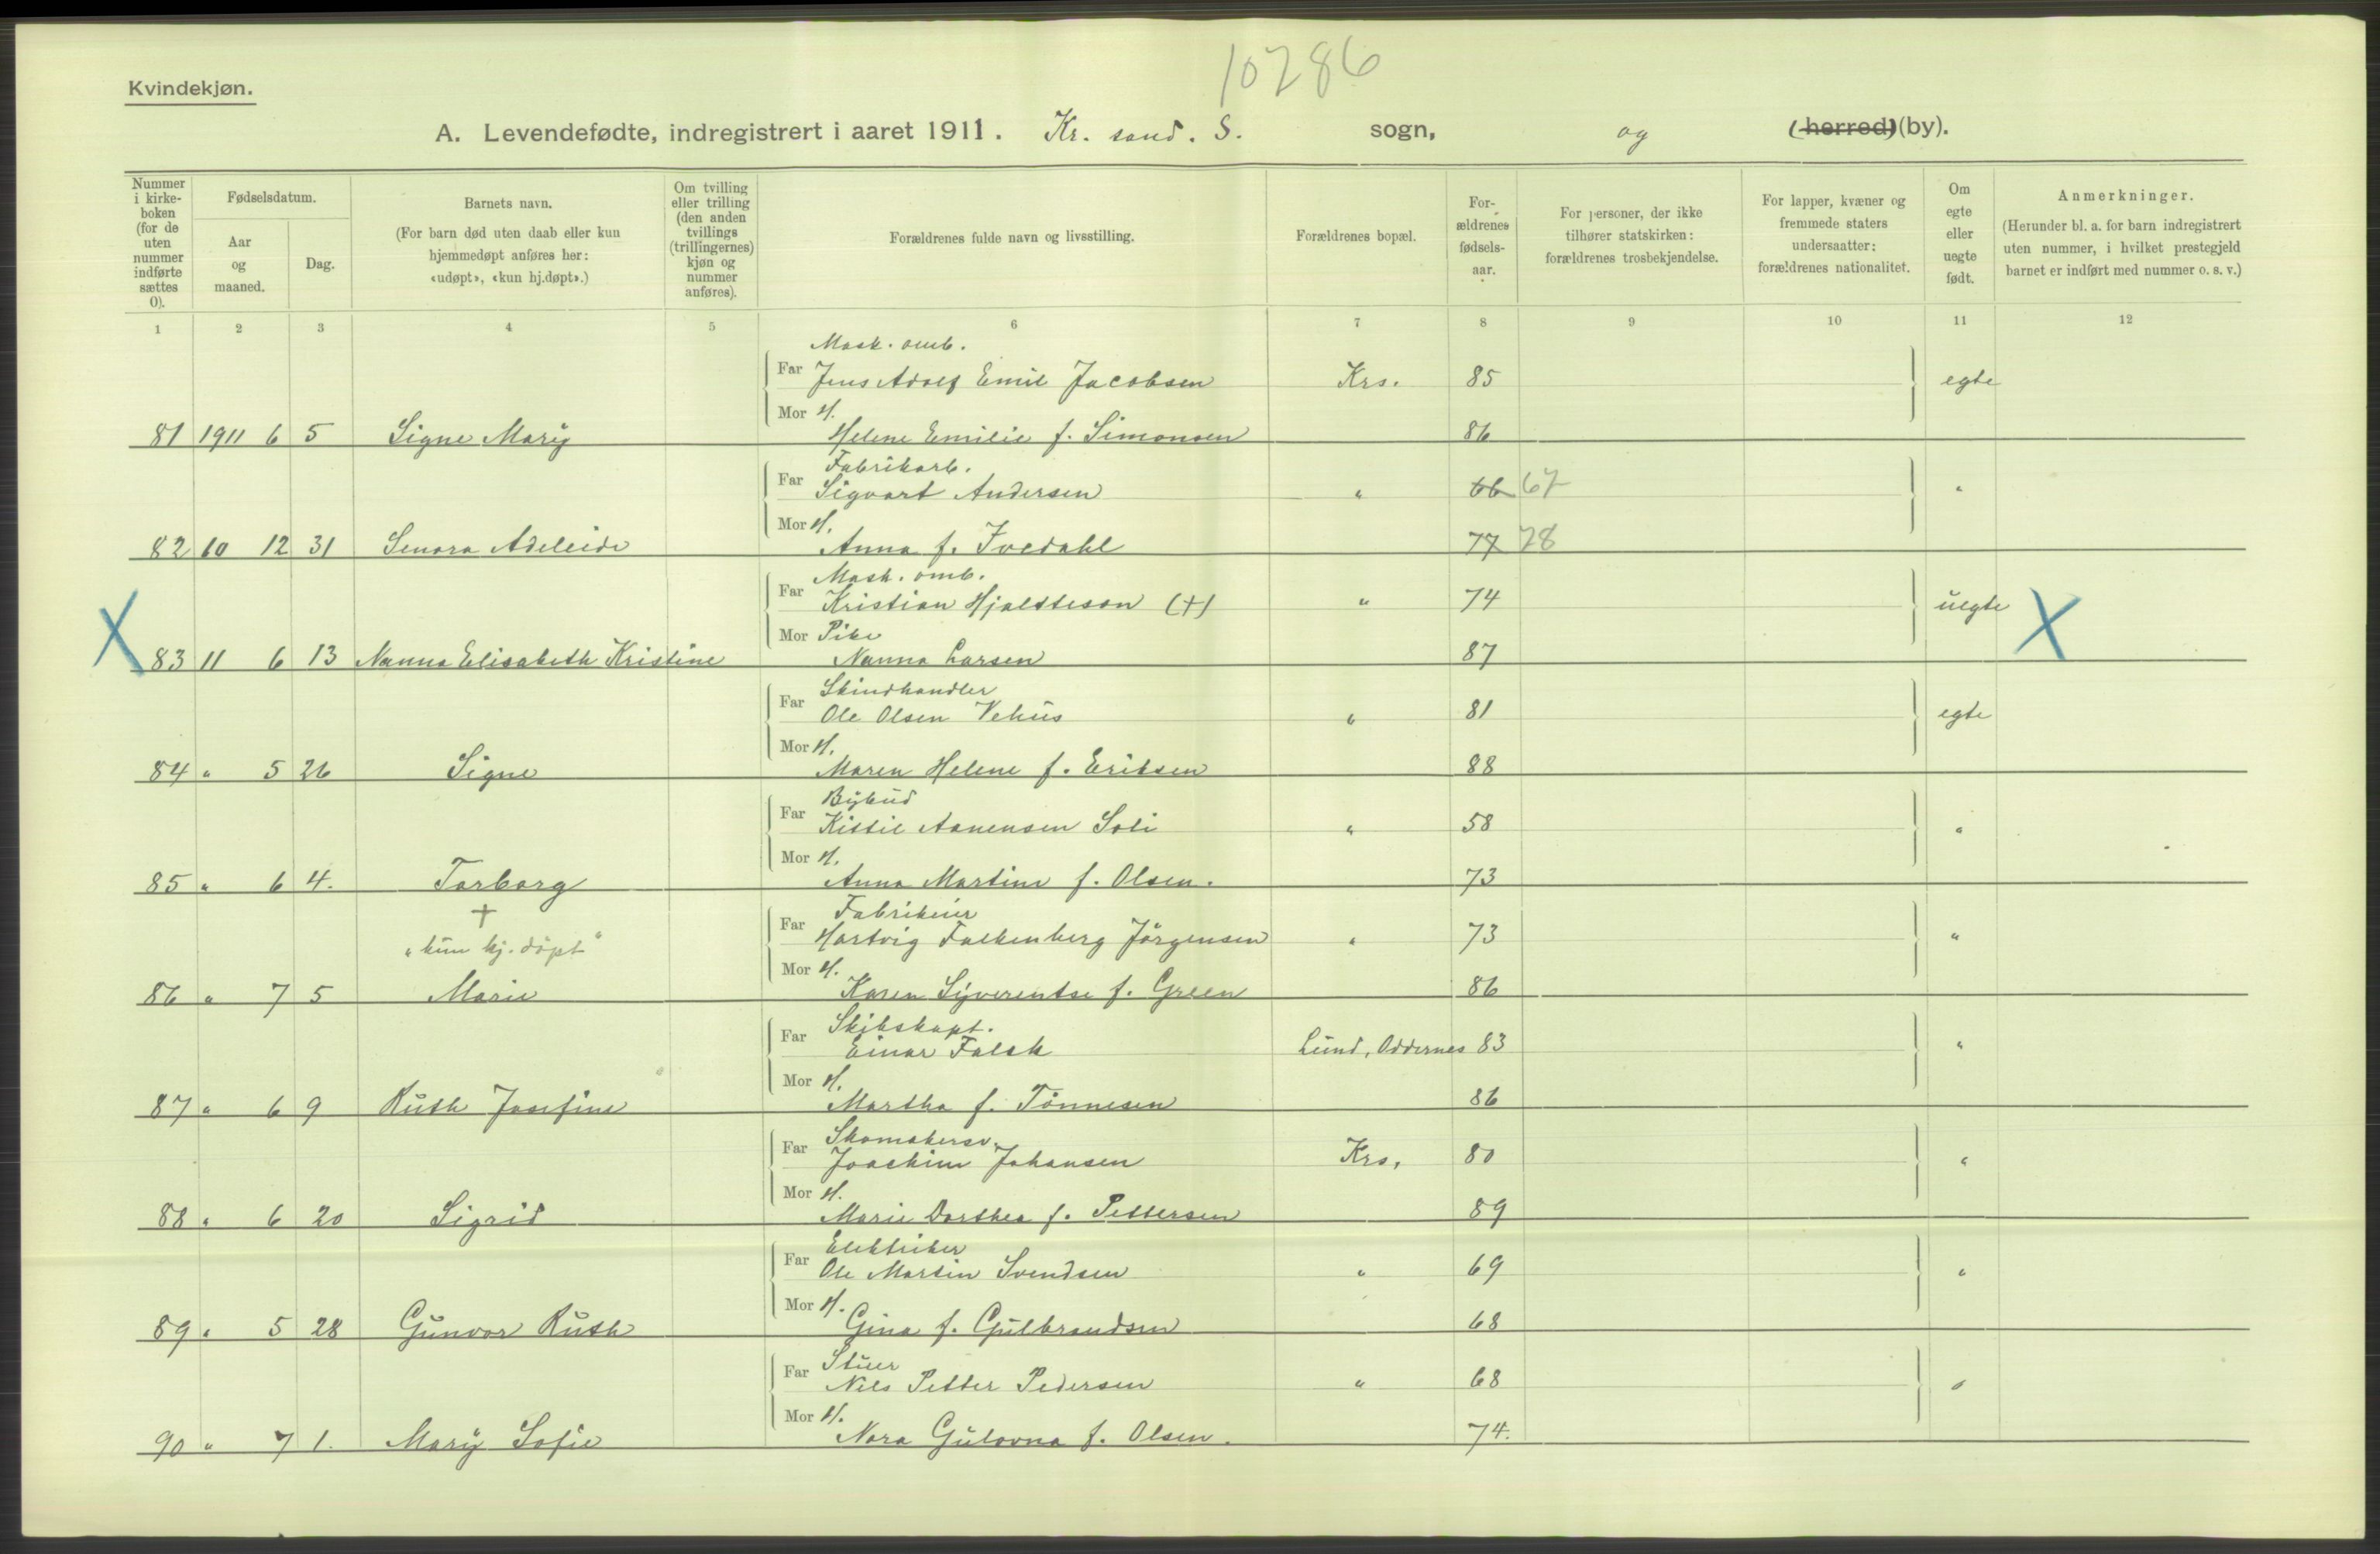 10286
Kvindekjøn.
A. Levendefødte, indregistrert i aaret 1911. Kr. sand. S. sogn, og (herred) (by).
Nummer i kirke- boken (for de uten nummer indførte sættes 0).
Fødselsdatum.
Aar og maaned.
Dag.
Barnets navn.
(For barn død uten daab eller kun hjemmedøpt anføres her: «udøpt», «kun hj.døpt».)
Om tvilling eller trilling (den anden tvillings (trillingernes) kjøn og nummer anføres).
Forældrenes fulde navn og livsstilling.
Forældrenes bopæl.
For- ældrenes fødsels- aar.
For personer, der ikke tilhører statskirken: forældrenes trosbekjendelse.
For lapper, kvæner og fremmede staters undersaatter: forældrenes nationalitet.
Om egte eller uegte født.
Anmerkninger.
(Herunder bl. a. for barn indregistrert uten nummer, i hvilket prestegjeld barnet er indført med nummer o. s. v.)
1 2 3 4 5 6 7 8 9 10 11 12
Mask. omb.
Far Jens Adolf Emil Jacobsen Krs. 85 egte
Mor H.
81 1911 6 5 Signe Marÿ Helene Emilie f. Simonsen 86
Fabrikarb.
Far Sigvart Andersen " 66 67 "
Mor H.
82 10 12 31 Senora Adeleide Anna f. Ivedahl 77 78
Mask. omb.
Far Kristian Hjaltteson (+) " 74 uegte
Mor Pike
X 83 11 6 13 Nanna Elisabeth Kristine Nanna Larsen 87 X
Skindhandler
Far Ole Olsen Vehus " 81 egte
Mor H.
84 " 5 26 Signe Maren Helene f. Eriksen 88
Bybud
Far Kittil Aanensen Soli " 58 "
Mor H.
85 " 6 4. Torborg Anna Martine f. Olsen. 73
+
Fabrikeier
Far Hartvig Falkenberg Jörgensen " 73 "
"kun hj. döpt"
Mor H.
86 " 7 5 Marie Karen Syverentse f. Green 86
Skibskapt.
Far Einar Falck Lund, Oddernes 83 "
Mor H.
87 " 6 9 Ruth Josefine Martha f. Tönnesen 86
Skomakersv.
Far Joachim Johansen Krs. 80 "
Mor H.
88 " 6 20 Sigrid Marie Dorthea f. Pettersen 89
Elektriker
Far Ole Martin Svendsen " 69 "
Mor H.
89 " 5 28 Gunvor Ruth Gina f. Gulbrandsen 68
Stuer
Far Nils Petter Pedersen " 68 "
Mor H.
90 " 7 1. Marÿ Sofie Nora Gulovna f. Olsen. 74.